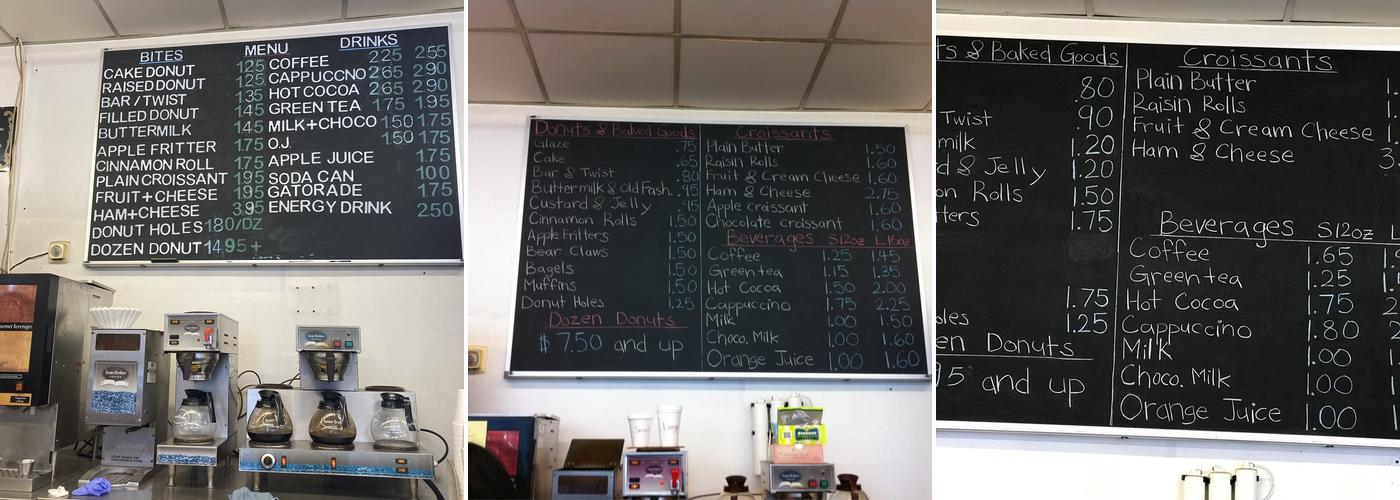 BITES
CAKE DONUT 125
RAISED DONUT 125
BAR / TWIST 135
FILLED DONUT 145
BUTTERMILK 145
APPLE FRITTER 175
CINNAMON ROLL 175
PLAIN CROISSANT 195
FRUIT + CHEESE 195
HAM+CHEESE 3.95
DONUT HOLES 180/DZ
DOZEN DONUT 1495 +
MENU DRINKS
COFFEE 225 255
CAPPUCCNO 265 290
HOT COCOA 265 290
GREEN TEA 175 195
MILK+CHOCO 150 175
O.J. 150 175
APPLE JUICE 175
SODA CAN 100
GATORADE 175
ENERGY DRINK 250
Donuts & Baked Goods
Glaze .75
Cake .65
Bar & Twist .80
Buttermilk & Old Fash. .95
Custard & Jelly .95
Cinnamon Rolls 1.50
Apple Fritters 1.50
Bear Claws 1.50
Bagels 1.50
Muffins 1.50
Donut Holes 1.25
Dozen Donuts
$7.50 and up
Croissants
Plain Butter 1.50
Raisin Rolls 1.60
Fruit & Cream Cheese 1.60
Ham & Cheese 2.75
Apple croissant 1.60
Chocolate croissant 1.60
Beverages S12oz L16oz
Coffee 1.25 1.45
Green tea 1.15 1.35
Hot Cocoa 1.50 2.00
Cappuccino 1.75 2.25
Milk 1.00 1.50
Choco. Milk 1.00 1.60
Orange Juice 1.00 1.60
ts & Baked Goods
.80
Twist .90
milk 1.20
d & Jelly 1.20
on Rolls 1.50
tters 1.75
1.75
oles 1.25
en Donuts
95 and up
Croissants
Plain Butter 1.
Raisin Rolls 1.
Fruit & Cream Cheese 1.
Ham & Cheese 3.
Beverages S12oz L
Coffee 1.65
Green tea 1.25
Hot Cocoa 1.75 2
Cappuccino 1.80 2
Milk 1.00
Choco. Milk 1.00
Orange Juice 1.00